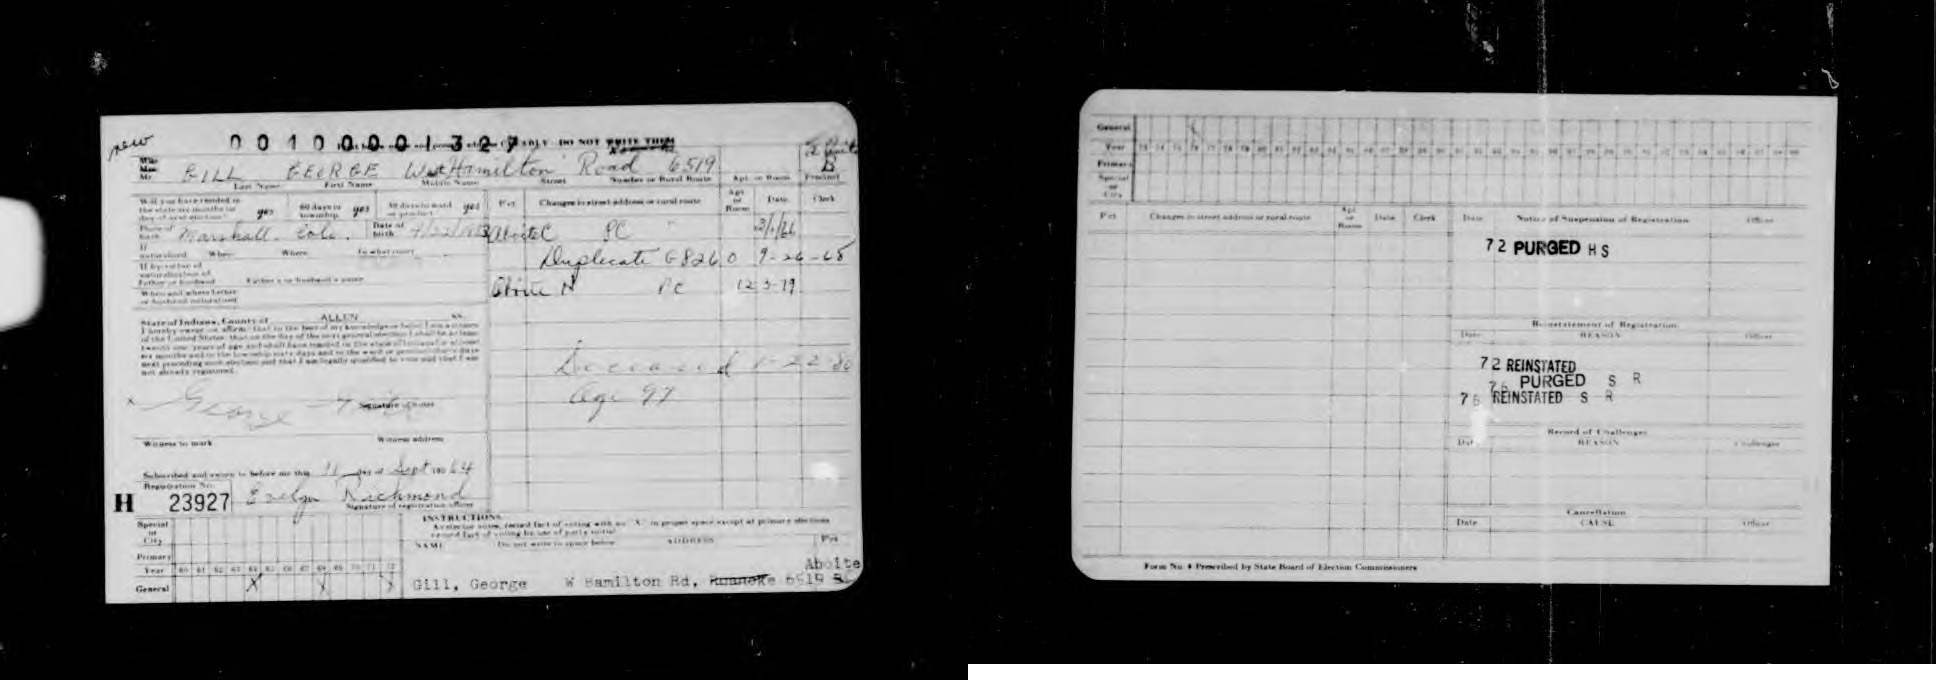 new
00100001327 ABLY DO NOT WRITE THEM
Miss
Mrs
Mr. GILL GEORGE West Hamilton Road 6519 B
Last Name First Name Middle Name Street Number or Rural Route Apt. or Room Precinct
Will you have resided in the state six months on day of next election? yes 60 days in township yes 30 days in ward or precinct yes
Pct Changes in street address or rural route Apt or Room Date Clerk
Place of birth Marshall. Colo. Date of birth
Aboite C PC
If naturalized When Where In what court
Duplicate G8260 9-26-68
If by virtue of naturalization of Father or husband Father's or husband's name
When and where father or husband naturalized
Aboite N PC 12 3-79
State of Indiana, County of ALLEN ss.
I hereby swear or affirm that to the best of my knowledge or belief I am a citizen
of the United States, that on the day of the next general election I shall be at least
twenty one years of age and shall have resided in the state of Indiana for at least
six months and in the township sixty days and in the ward or precinct thirty days
next preceding such election and that I am legally qualified to vote and that I am
not already registered.
Deceased 1-22-80
Age 97
x George Gill
Signature of voter
Witness to mark Witness address
Subscribed and sworn to before me this 11 day of Sept 1964
Registration No.
H 23927 Evelyn Richmond
Signature of registration officer
INSTRUCTIONS
As elector votes, record fact of voting with an "X" in proper space except at primary elections
record fact of voting by use of party initial
Special or City
NAME Do not write in space below ADDRESS Pct
Primary
Year 60 61 62 63 64 65 66 67 68 69 70 71 72
Aboite
General X X X
Gill, George W Hamilton Rd, Roanoke 6519
General
Year 73 74 75 76 77 78 79 80 81 82 83 84 85 86 87 88 89 90 91 92 93 94 95 96 97 98 99
Primary
Special or City
Pct Changes in street address or rural route Apt or Room Date Clerk Date Notice of Suspension of Registration Officer
72 PURGED H S
Reinstatement of Registration
Date REASON Officer
72 REINSTATED
76 PURGED S R
76 REINSTATED S R
Record of Challenges
Date REASON Challenger
Cancellation
Date CAUSE Officer
Form No. 4 Prescribed by State Board of Election Commissioners